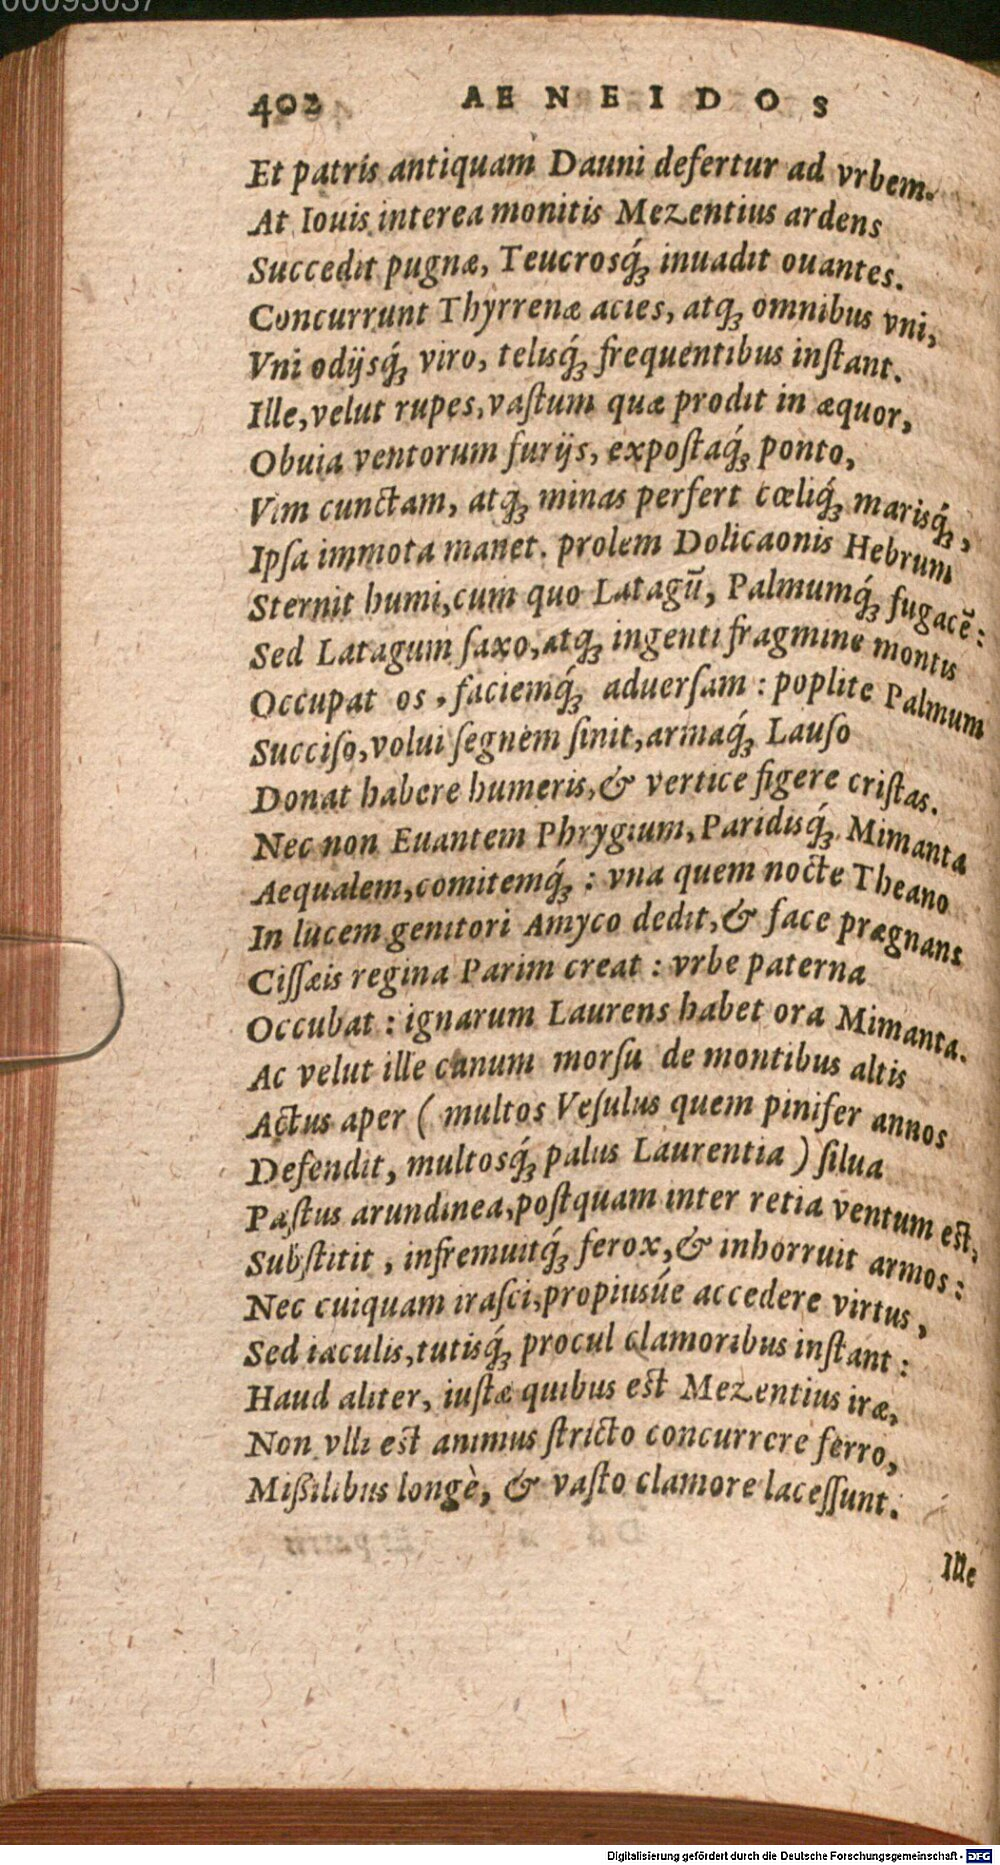 00093037
402 AENEIDOS
Et patris antiquam Dauni defertur ad vrbem.
At Iouis interea monitis Mezentius ardens
Succedit pugnæ, Teucrosq́; inuadit ouantes.
Concurrunt Thyrrenæ acies, atq; omnibus vni,
Vni odijsq́; viro, telisq́; frequentibus inſtant.
Ille, velut rupes, vaſtum quæ prodit in æquor,
Obuia ventorum furijs, expoſtaq́; ponto,
Vim cunctam, atq; minas perfert cœliq́; marisq́;,
Ipſa immota manet. prolem Dolicaonis Hebrum
Sternit humi, cum quo Latagū, Palmumq́; fugacē:
Sed Latagum ſaxo, atq; ingenti fragmine montis
Occupat os, faciemq́; aduerſam: poplite Palmum
Succiſo, volui ſegnem ſinit, armaq́; Lauſo
Donat habere humeris, & vertice figere criſtas.
Nec non Euantem Phrygium, Paridisq́; Mimanta
Aequalem, comitemq́;: vna quem nocte Theano
In lucem genitori Amyco dedit, & face prægnans
Ciſſæis regina Parim creat: vrbe paterna
Occubat: ignarum Laurens habet ora Mimanta.
Ac velut ille canum morſu de montibus altis
Actus aper (multos Veſulus quem pinifer annos
Defendit, multosq́; palus Laurentia) ſilua
Paſtus arundinea, poſtquam inter retia ventum eſt,
Subſtitit, infremuitq́; ferox, & inhorruit armos:
Nec cuiquam iraſci, propiusúe accedere virtus,
Sed iaculis, tutisq́; procul clamoribus inſtant:
Haud aliter, iuſtæ quibus eſt Mezentius iræ,
Non vlli eſt animus ſtricto concurrere ferro,
Mißilibus longè, & vaſto clamore laceſſunt.
Ille
Digitalisierung gefördert durch die Deutsche Forschungsgemeinschaft - DFG